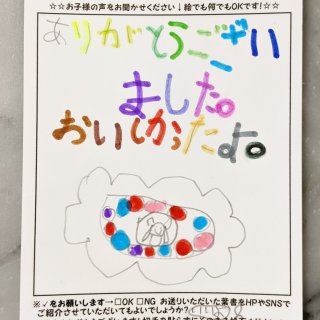 ☆☆お子様の声をお聞かせください↓絵でも何でもOKです!☆☆
ありがとうござい
ました。
おいしかったよ。
※✓をお願いします→□OK □NG お送りいただいた葉書をHPやSNSで
ご紹介させていただいてもよいでしょうか?